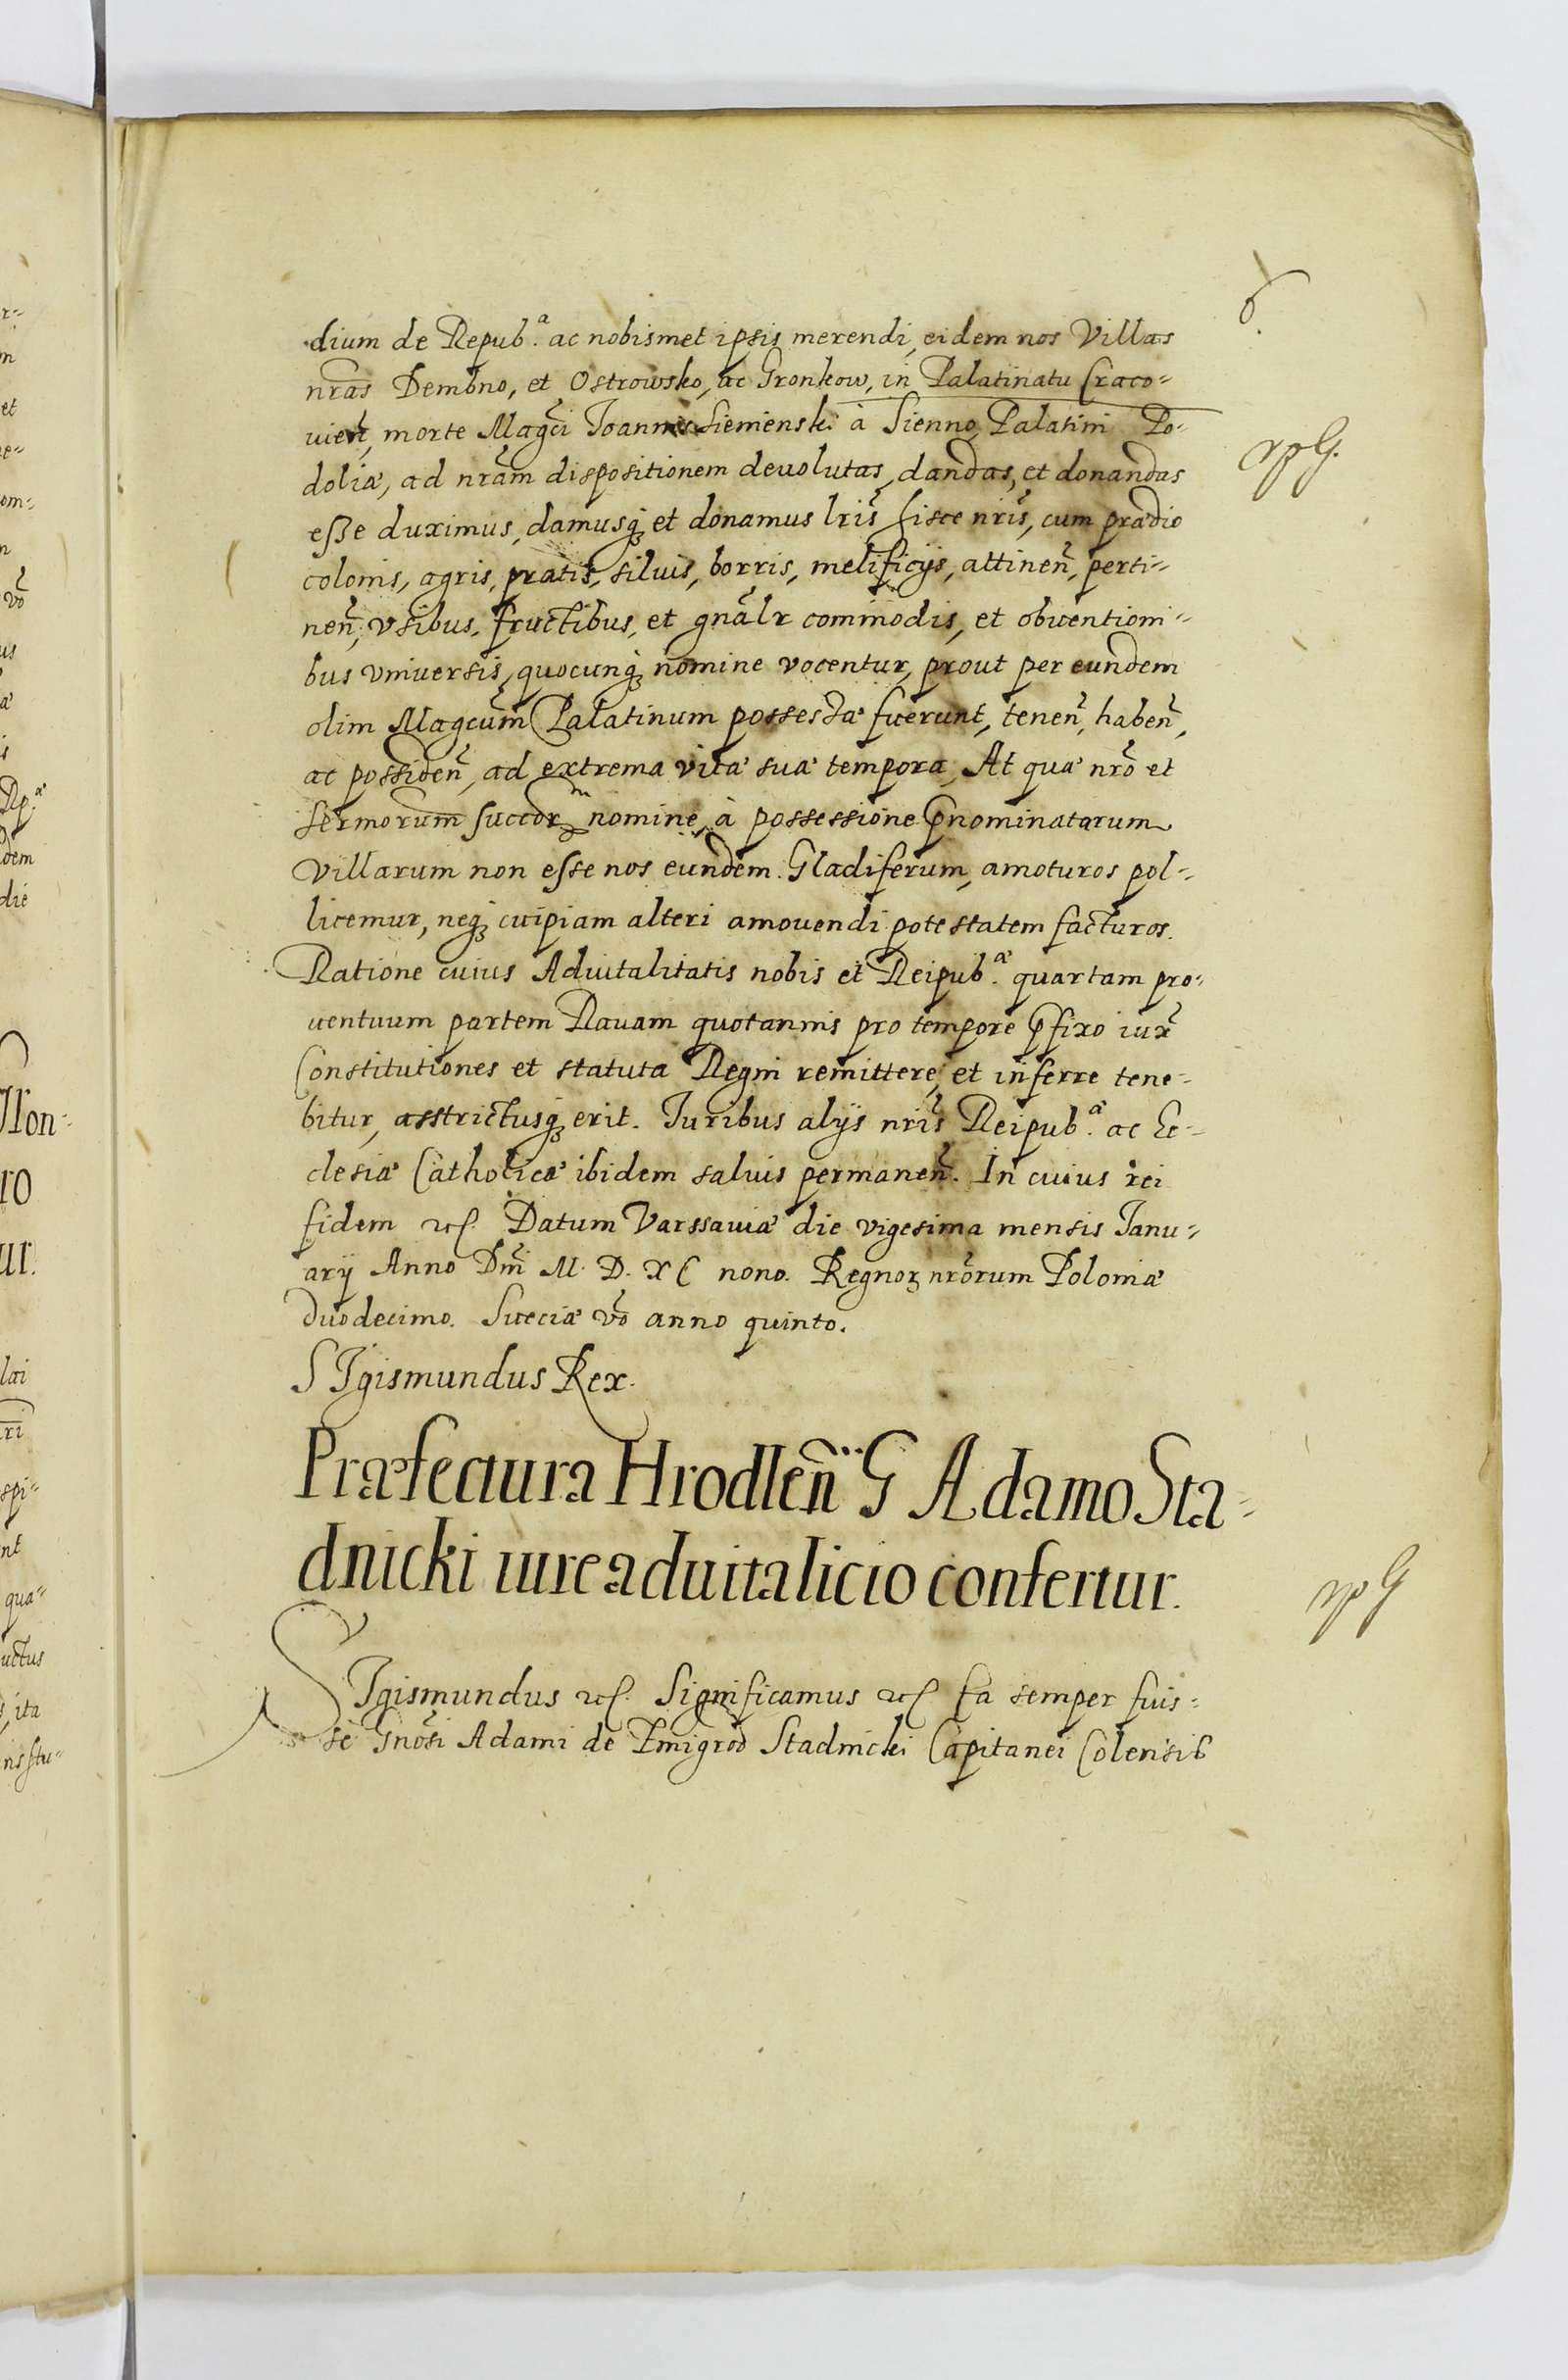 6.
dium de Repub.ᵃ ac nobismet ipsis merendi, eidem nos Villas
nr̃as Dembno, et Ostrowsko, ac Gronkow, in Palatinatu Craco-
vien̄, morte Mag̃ci Joannis Siemienski à Sienno, Palatini Po-
doliæ, ad nr̃am dispositionem devolutas, dandas, et donandas
esse duximus, damusq́ꝫ et donamus lr̃is hisce nr̃is, cum prædio
colonis, agris, pratis, siluis, borris, melificijs, attinen̄, perti-
nen̄, vsibus, fructibus, et gn̄alr commodis, et obuentioni-
bus vniuersis, quocunq́ꝫ nomine vocentur, prout per eundem
olim Magc̃um Palatinum possessæ fuerunt, tenen̄, haben̄,
ac possiden̄, ad extrema vitæ suæ tempora, At quæ nr̃o et
Sermorum succorꝝ nomine, à possessione p̄nominatarum
villarum non esse nos eundem Gladiferum, amoturos pol-
licemur, neq́ꝫ cuipiam alteri amouendi potestatem facturos.
Ratione cuius Aduitalitatis nobis et Reipub.ᵃᵉ quartam pro-
uentuum partem Rauam quotannis pro tempore p̄fixo iux̃
Constitutiones et statuta Regni remittere, et inferre tene-
bitur, asstrictusq́ꝫ erit. Juribus alijs nr̃is Reipub.ᵃᵉ ac Ec-
clesiæ Catholicæ ibidem saluis permanen̄. In cuius rei
fidem etc. Datum Varssauiæ die vigesima mensis Janu-
arij Anno Dn̄i M. D. XC nono. Regnoꝝ nr̃orum Poloniæ
duodecimo. Sueciæ vō anno quinto.
SIgismundus Rex.
Præfectura Hrodlen̄ G Adamo Sta-
dnicki iure aduitalicio confertur.
SIgismundus etc. Significamus etc. Ea semper fuis-
se Gnōsi Adami de Zmigrod Stadnicki Capitanei Colensis